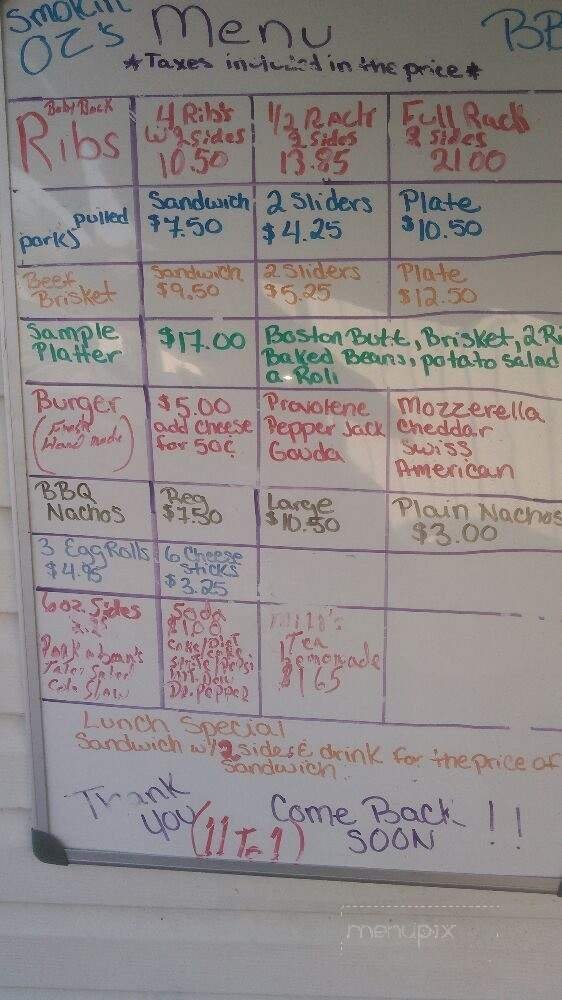 Smokin
OZ's Menu BB
*Taxes included in the price*
Baby Back
Ribs
4 Ribs
w/2 sides
10.50
1/2 Rack
2 Sides
13.85
Full Rack
2 Sides
21.00
pulled
porks
Sandwich
$7.50
2 Sliders
$4.25
Plate
$10.50
Beef
Brisket
Sandwich
$9.50
2 Sliders
$5.25
Plate
$12.50
Sample
Platter
$17.00
Boston Butt, Brisket, 2 Ri
Baked Beans, potato salad
a Roll
Burger
(Fresh
Hand made)
$5.00
add cheese
for 50¢
Provolene
Pepper Jack
Gouda
Mozzerella
Cheddar
Swiss
American
BBQ
Nachos
Reg
$7.50
Large
$10.50
Plain Nachos
$3.00
3 Egg Rolls
$4.95
6 Cheese
Sticks
$3.25
6oz. Sides
Pork n beans
Tater Salad
Cole Slaw
Soda
$1.00
Coke/Diet
Sprite/Pepsi
Mt. Dew
Dr. Pepper
Tea
Lemonade
$1.65
Lunch Special
Sandwich w/2 sides & drink for the price of
Sandwich.
Thank
you
Come Back
SOON !!
(11 To 1)
menupix